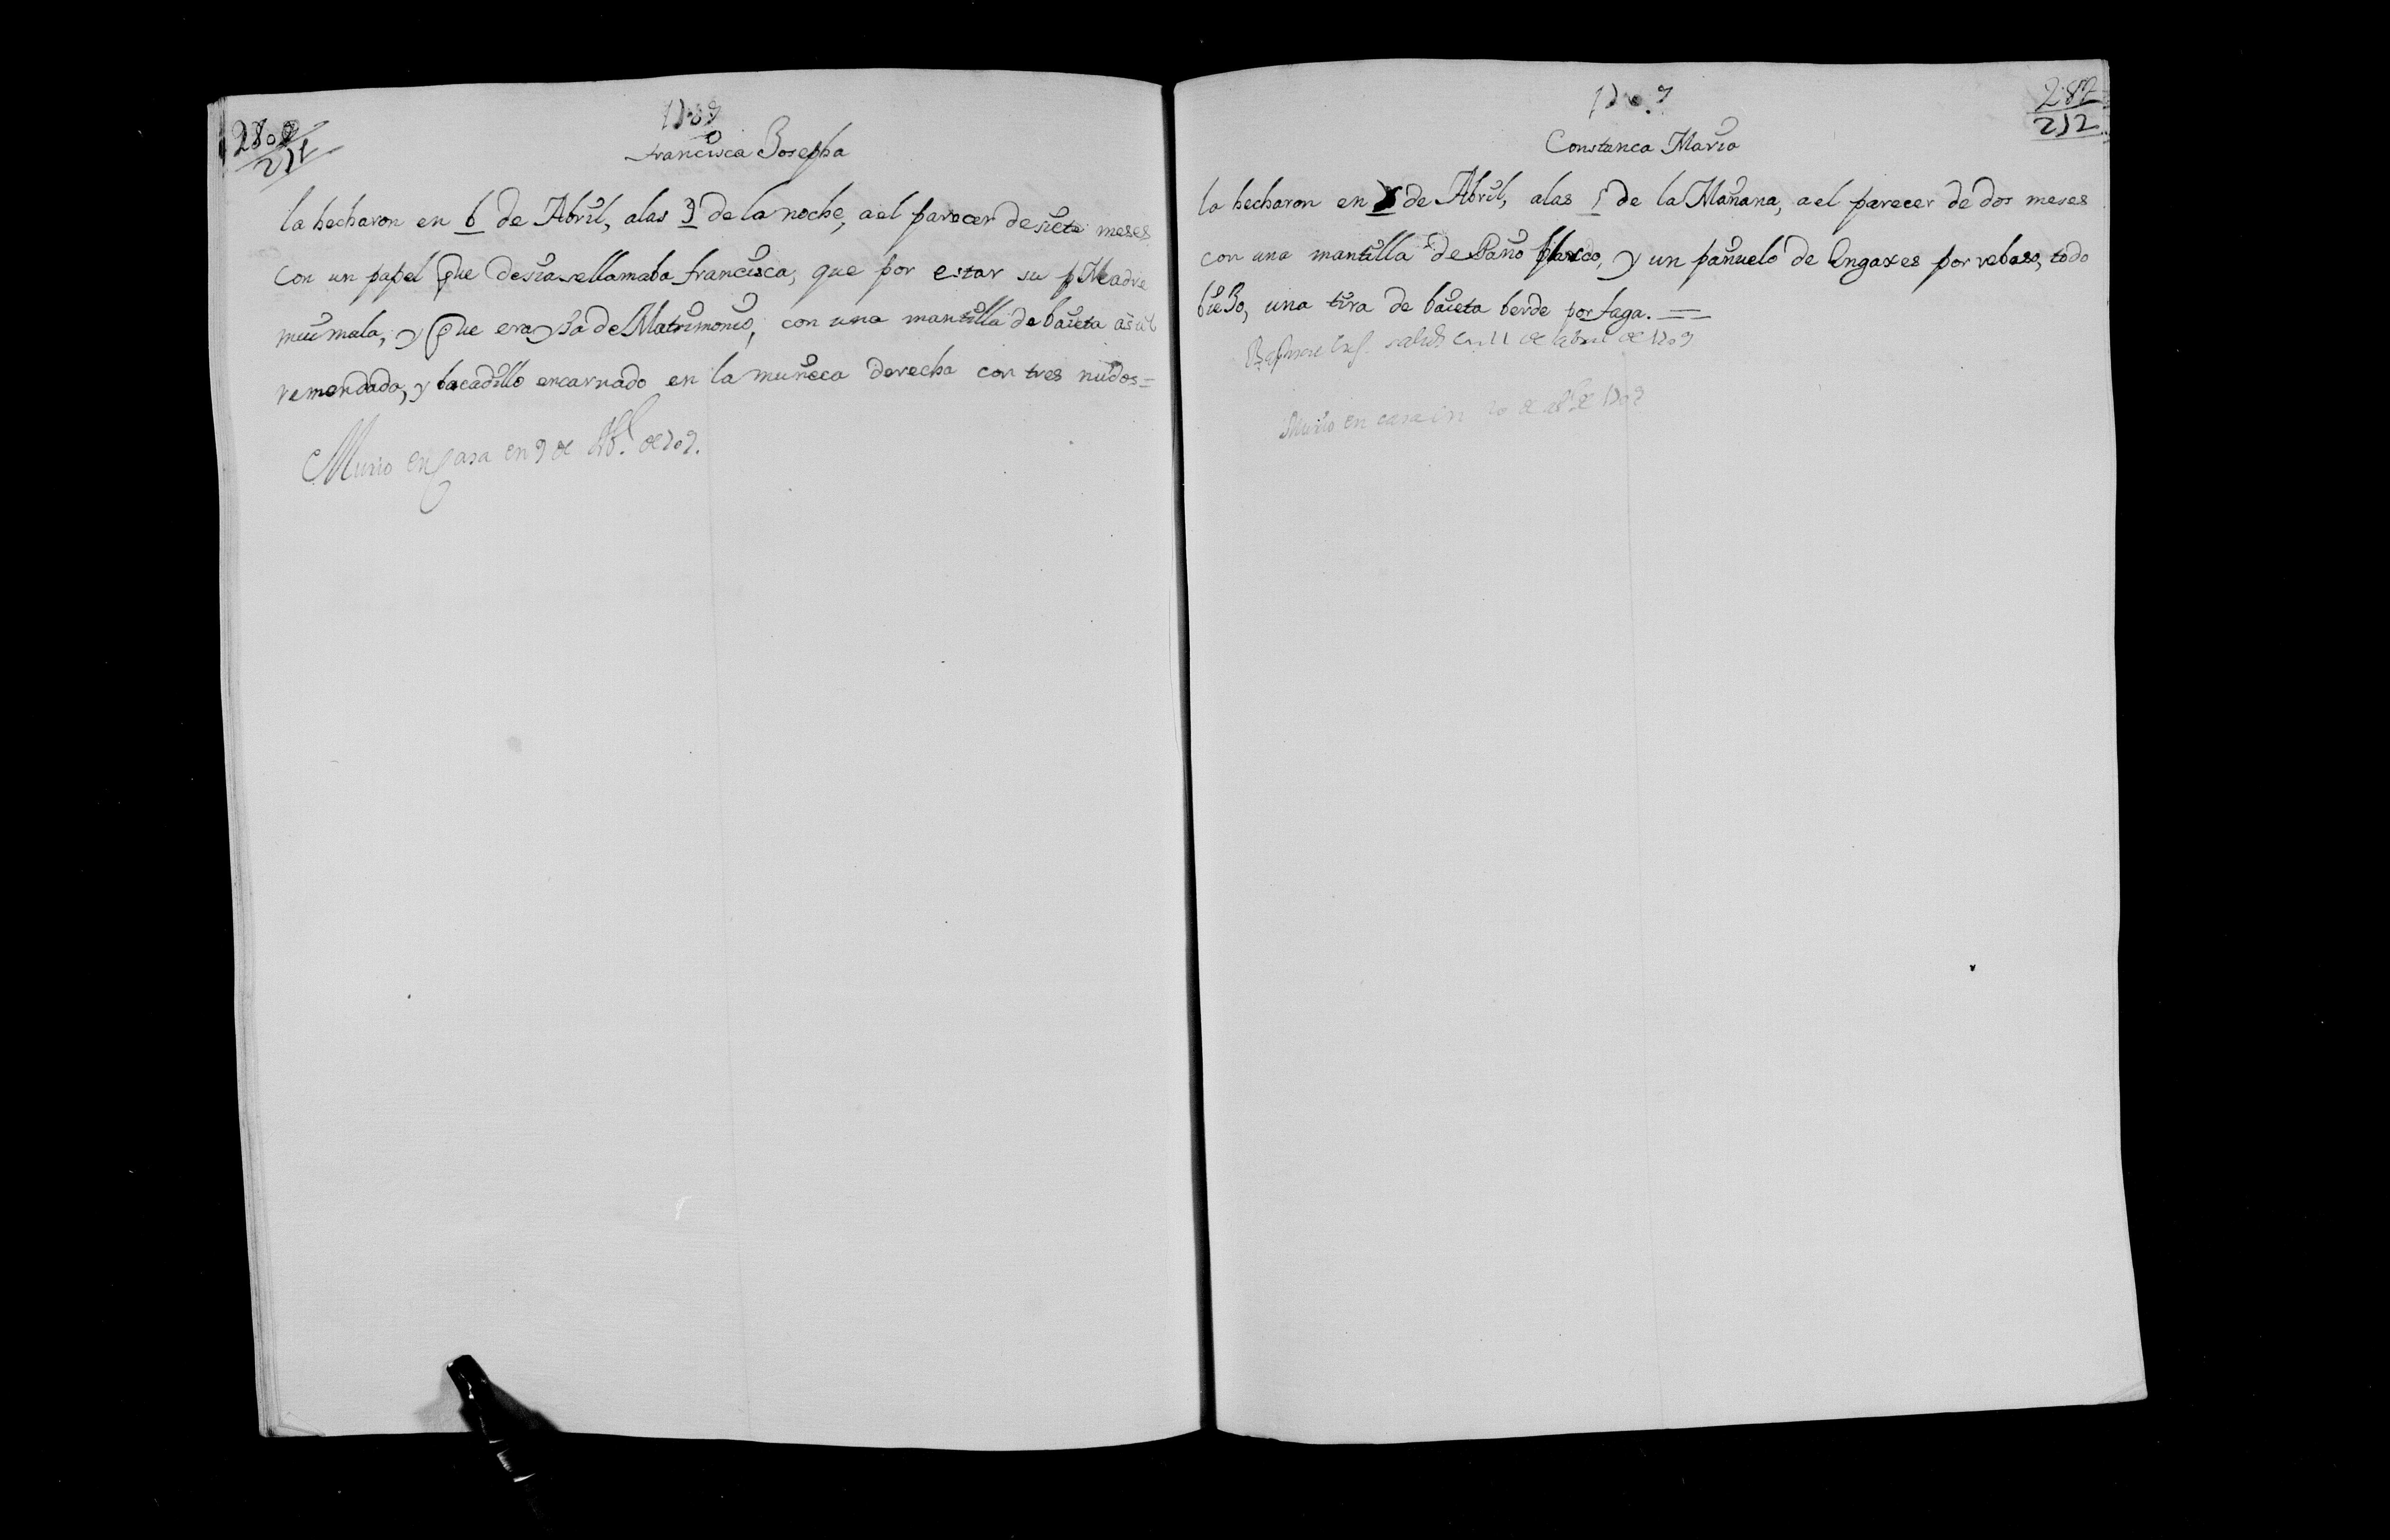 1709
Francisca Josepha
la hecharon en 6 de Abril, alas 9 de la noche, a el parecer de siete meses
con un papel que desia sellamaba francisca, que por estar su Madre
mui mala, y que era yJa de Matrimonio, con una mantilla de baieta asul
remendada, y bocadillo encarnado en la muñeca derecha con tres nudos =
Murio en Casa en 9 de Ab.l de 709.
1709
287
212
Constanca Maria
la hecharon en de Abril, alas de la Mañana, a el parecer de dos meses
con una mantilla de Paño blanco, y un pañuelo de Engaxes por reboso, todo
bieJo, una tira de baieta berde por faga. =
salud en 11 de abril de 1709
Murio en casa en 20 de de 1709